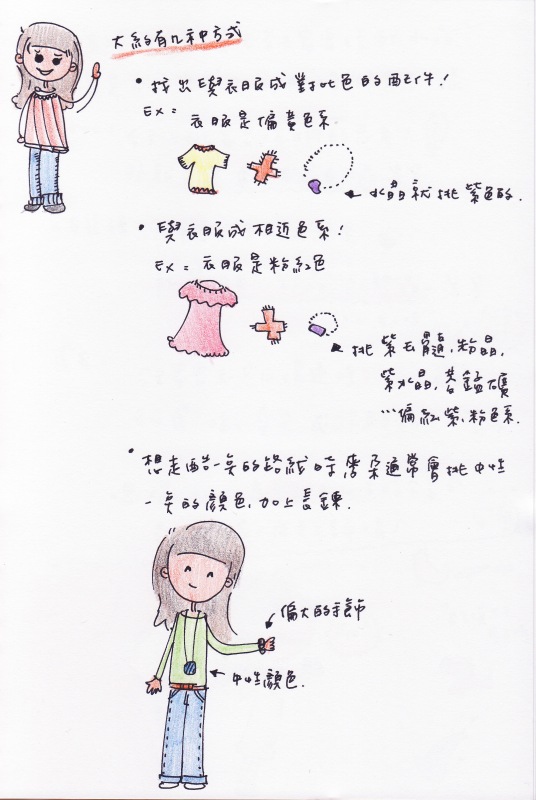 大約有几种方式
• 找出與衣服成對比色的配件!
EX = 衣服是偏黃色系
← 水晶就挑紫色的.
• 與衣服成相近色系!
EX = 衣服是粉紅色
挑紫玉髓、粉晶、
紫水晶、薔薇
…偏紅紫、粉色系.
• 想走酷一點的路線時 通常會挑中性
一點的顏色、加上長鍊.
偏大的手飾
中性顏色.